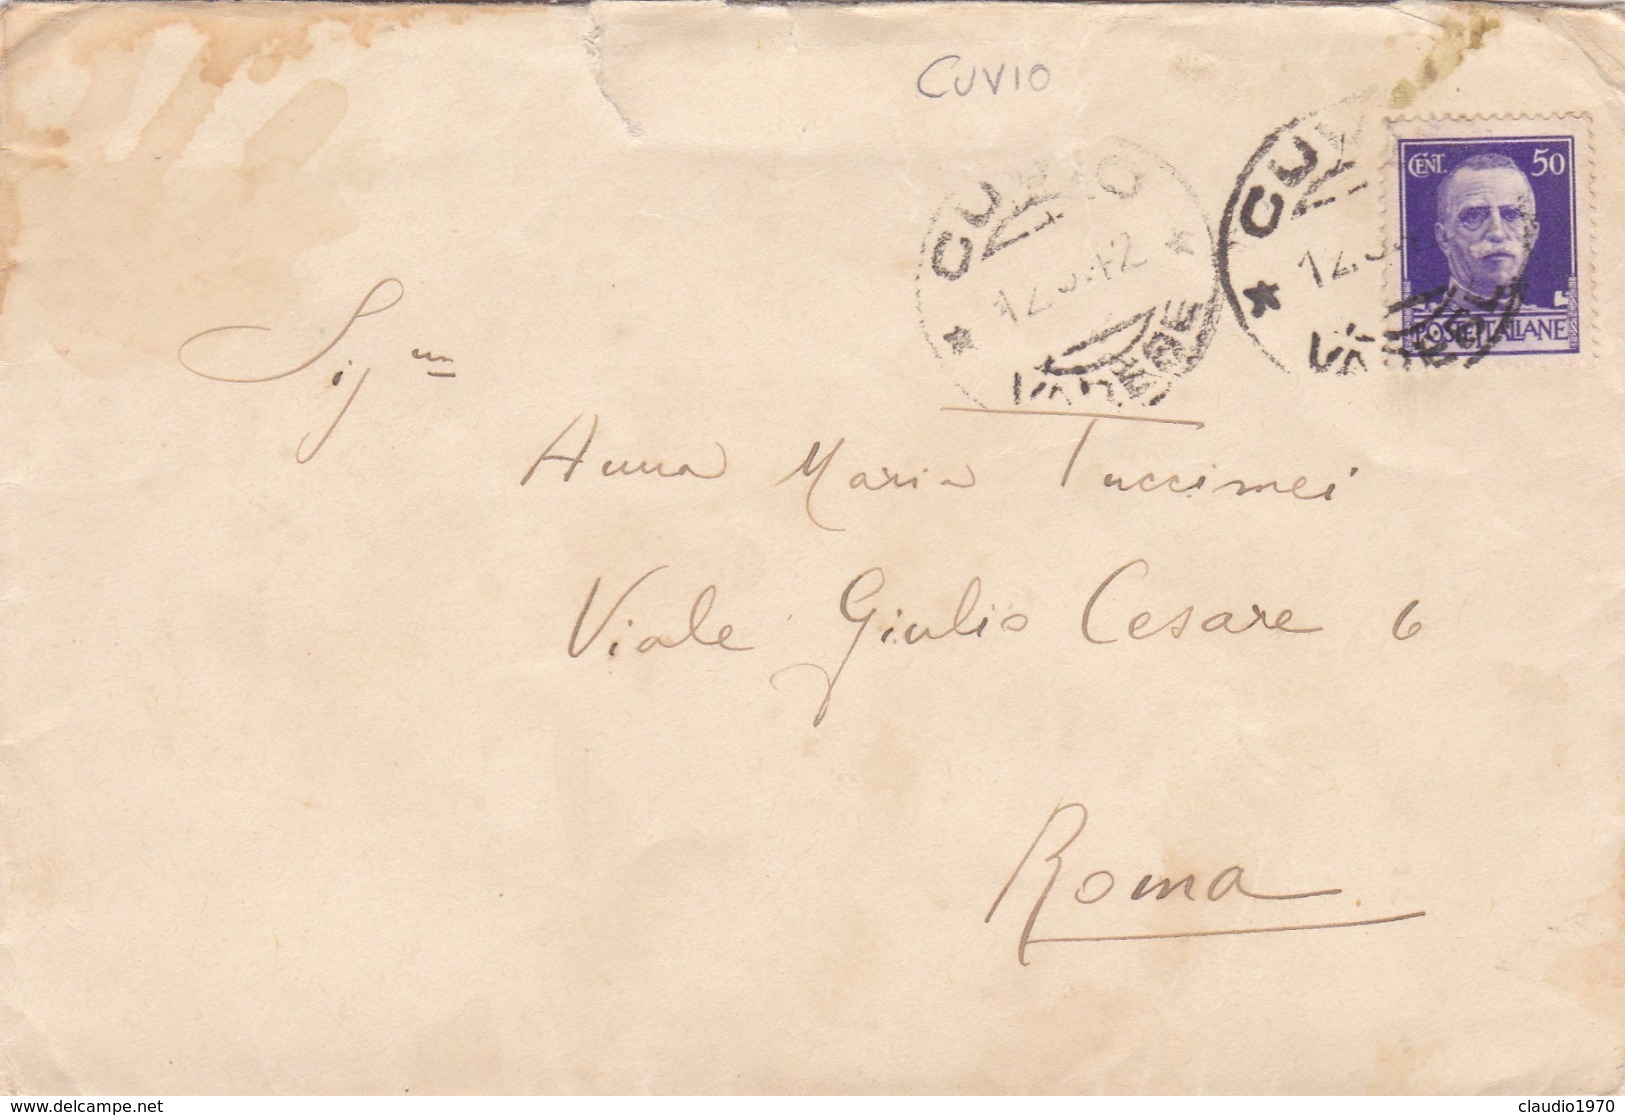 CUVIO
CUVIO
VARESE
CENT. 50
POSTE ITALIANE
Sig.na
Anna Maria Tuccimei
Viale Giulio Cesare 6
Roma
www.delcampe.net
claudio1970